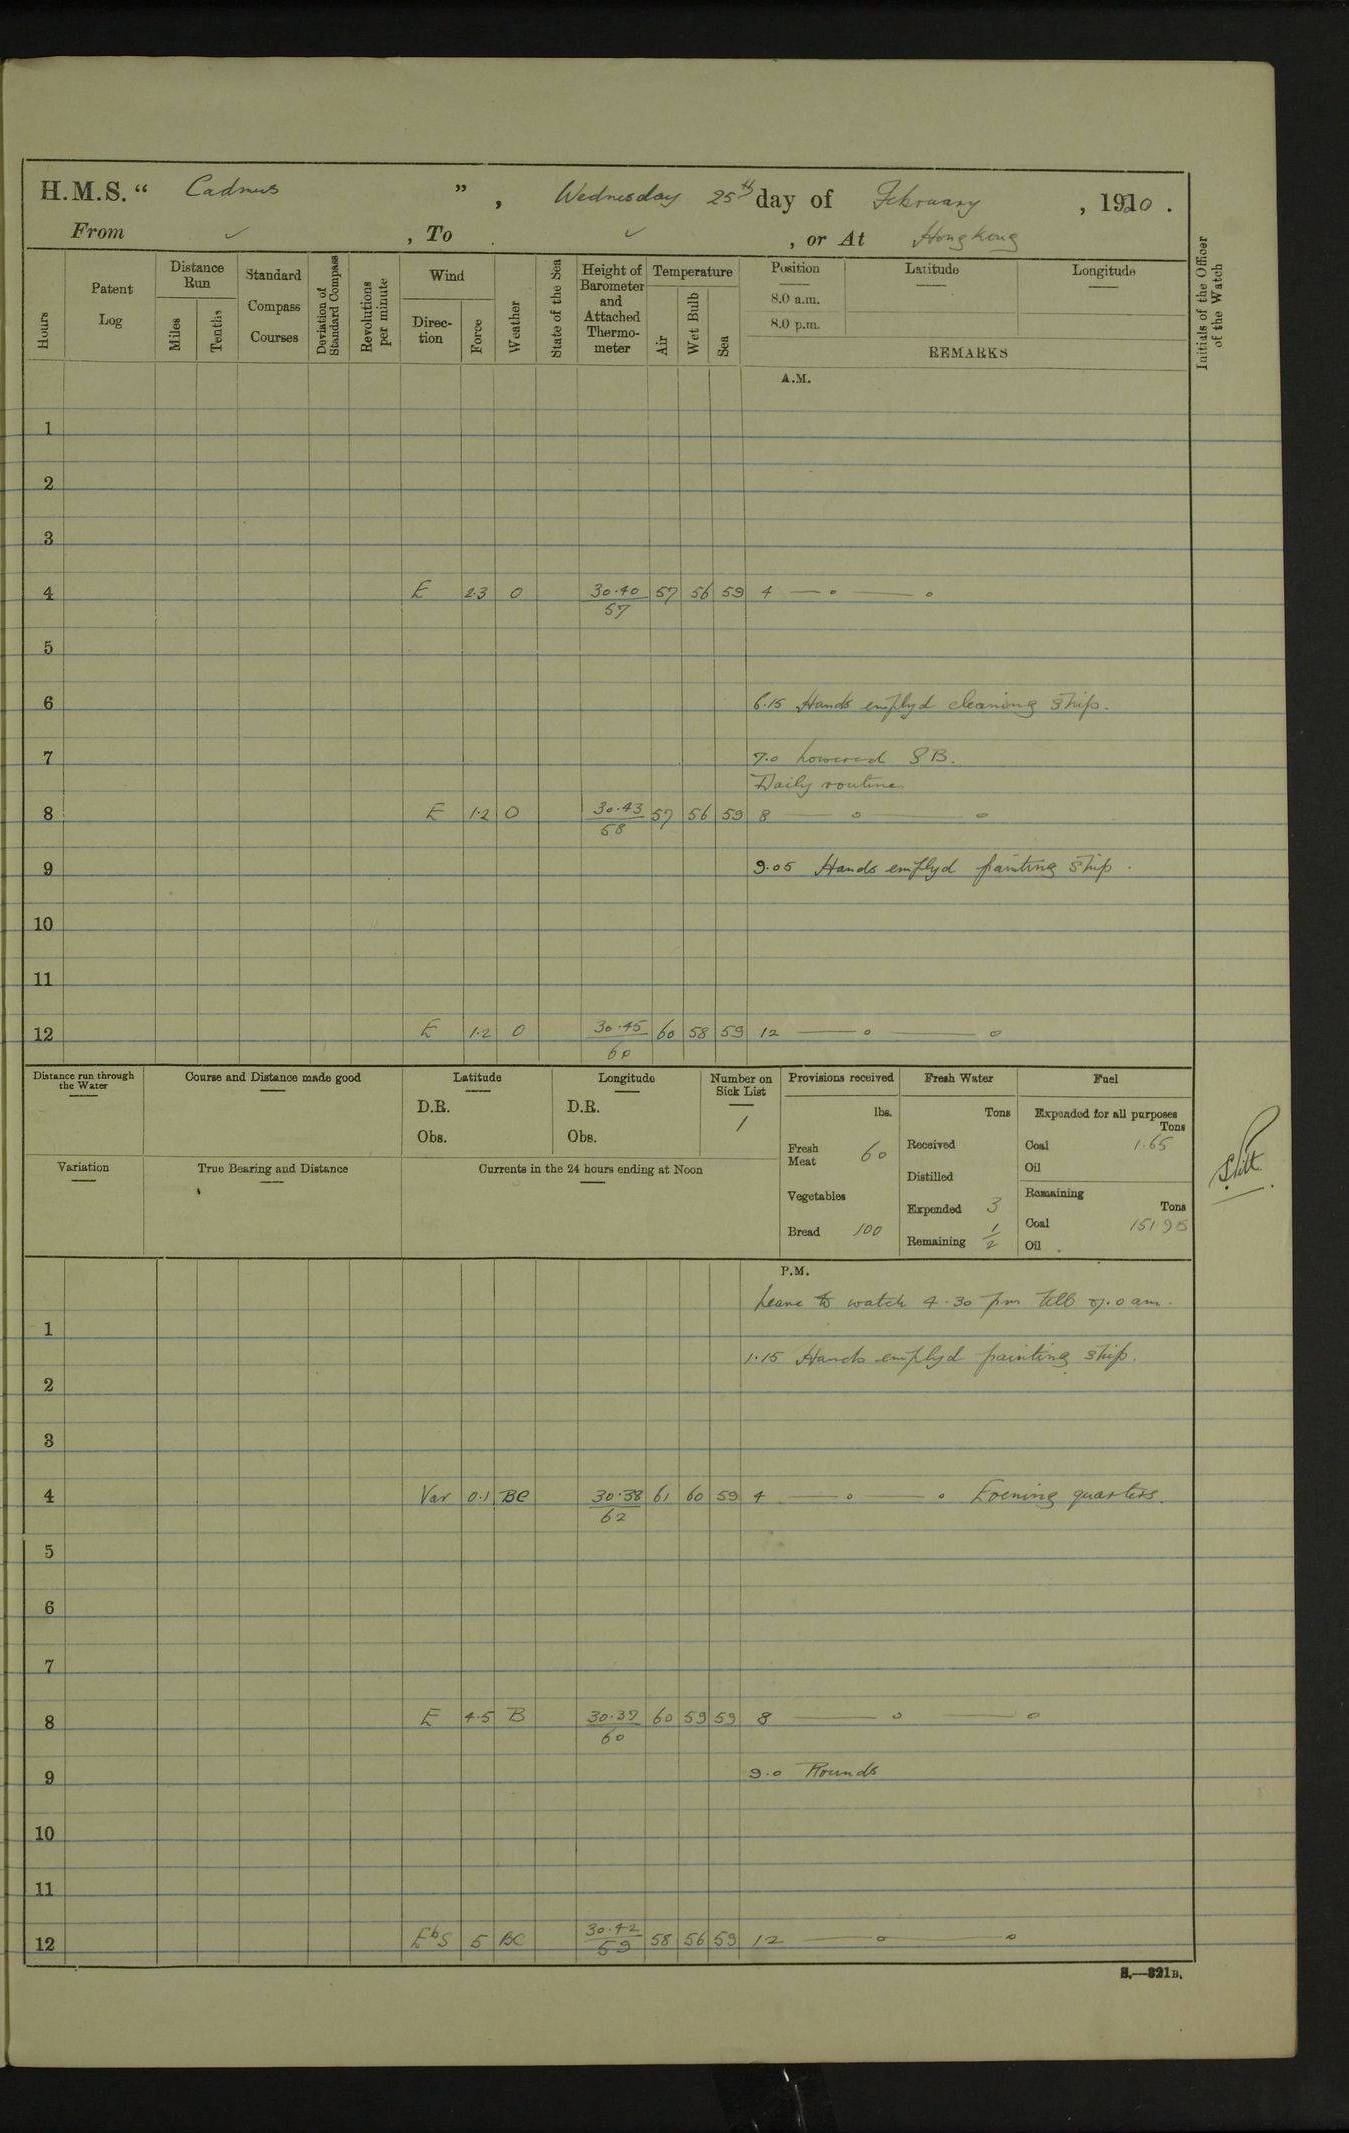 H.M.S. “ Cadmus ” , Wednesday 25th day of February , 1920 .
From ✓ , To ✓ , or At Hong Kong
Hours
Patent Log
Distance Run
Miles
Tenths
Standard Compass Courses
Deviation of Standard Compass
Revolutions per minute
Wind
Direc-tion
Force
Weather
State of the Sea
Height of Barometer and Attached Thermo-meter
Temperature
Air
Wet Bulb
Sea
Position
8.0 a.m.
8.0 p.m.
Latitude
Longitude
REMARKS
Initials of the Officer of the Watch
A.M.
1
2
3
4 E 2.3 O 30.40/57 57 56 59 4 — o — o
5
6 6.15 Hands emplyd cleaning ship.
7 7.0 Lowered SB.
Daily routine
8 E 1.2 O 30.43/58 57 56 59 8 — o — o
9 9.05 Hands emplyd painting ship.
10
11
12 E 1.2 O 30.45/60 60 58 59 12 — o — o
Distance run through the Water
Course and Distance made good
Latitude
D.R.
Obs.
Longitude
D.R.
Obs.
Number on Sick List
1
Variation
True Bearing and Distance
Currents in the 24 hours ending at Noon
Provisions received
lbs.
Fresh Meat 60
Vegetables
Bread 100
Fresh Water
Tons
Received
Distilled
Expended 3
Remaining 1/2
Fuel
Expended for all purposes
Tons
Coal 1.65
Oil
Remaining
Tons
Coal 151.95
Oil
P.M.
Leave to watch 4.30 pm till 7.0 am.
1
1.15 Hands emplyd painting ship.
2
3
4 Var 0.1 BC 30.38/62 61 60 59 4 — o — o Evening quarters.
5
6
7
8 E 4.5 B 30.37/60 60 59 59 8 — o — o
9 9.0 Rounds
10
11
12 EbS 5 BC 30.42/59 58 56 59 12 — o — o
S.—321B.